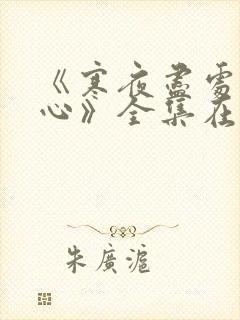 《寒夜盡處
心》全集在
朱廣滬